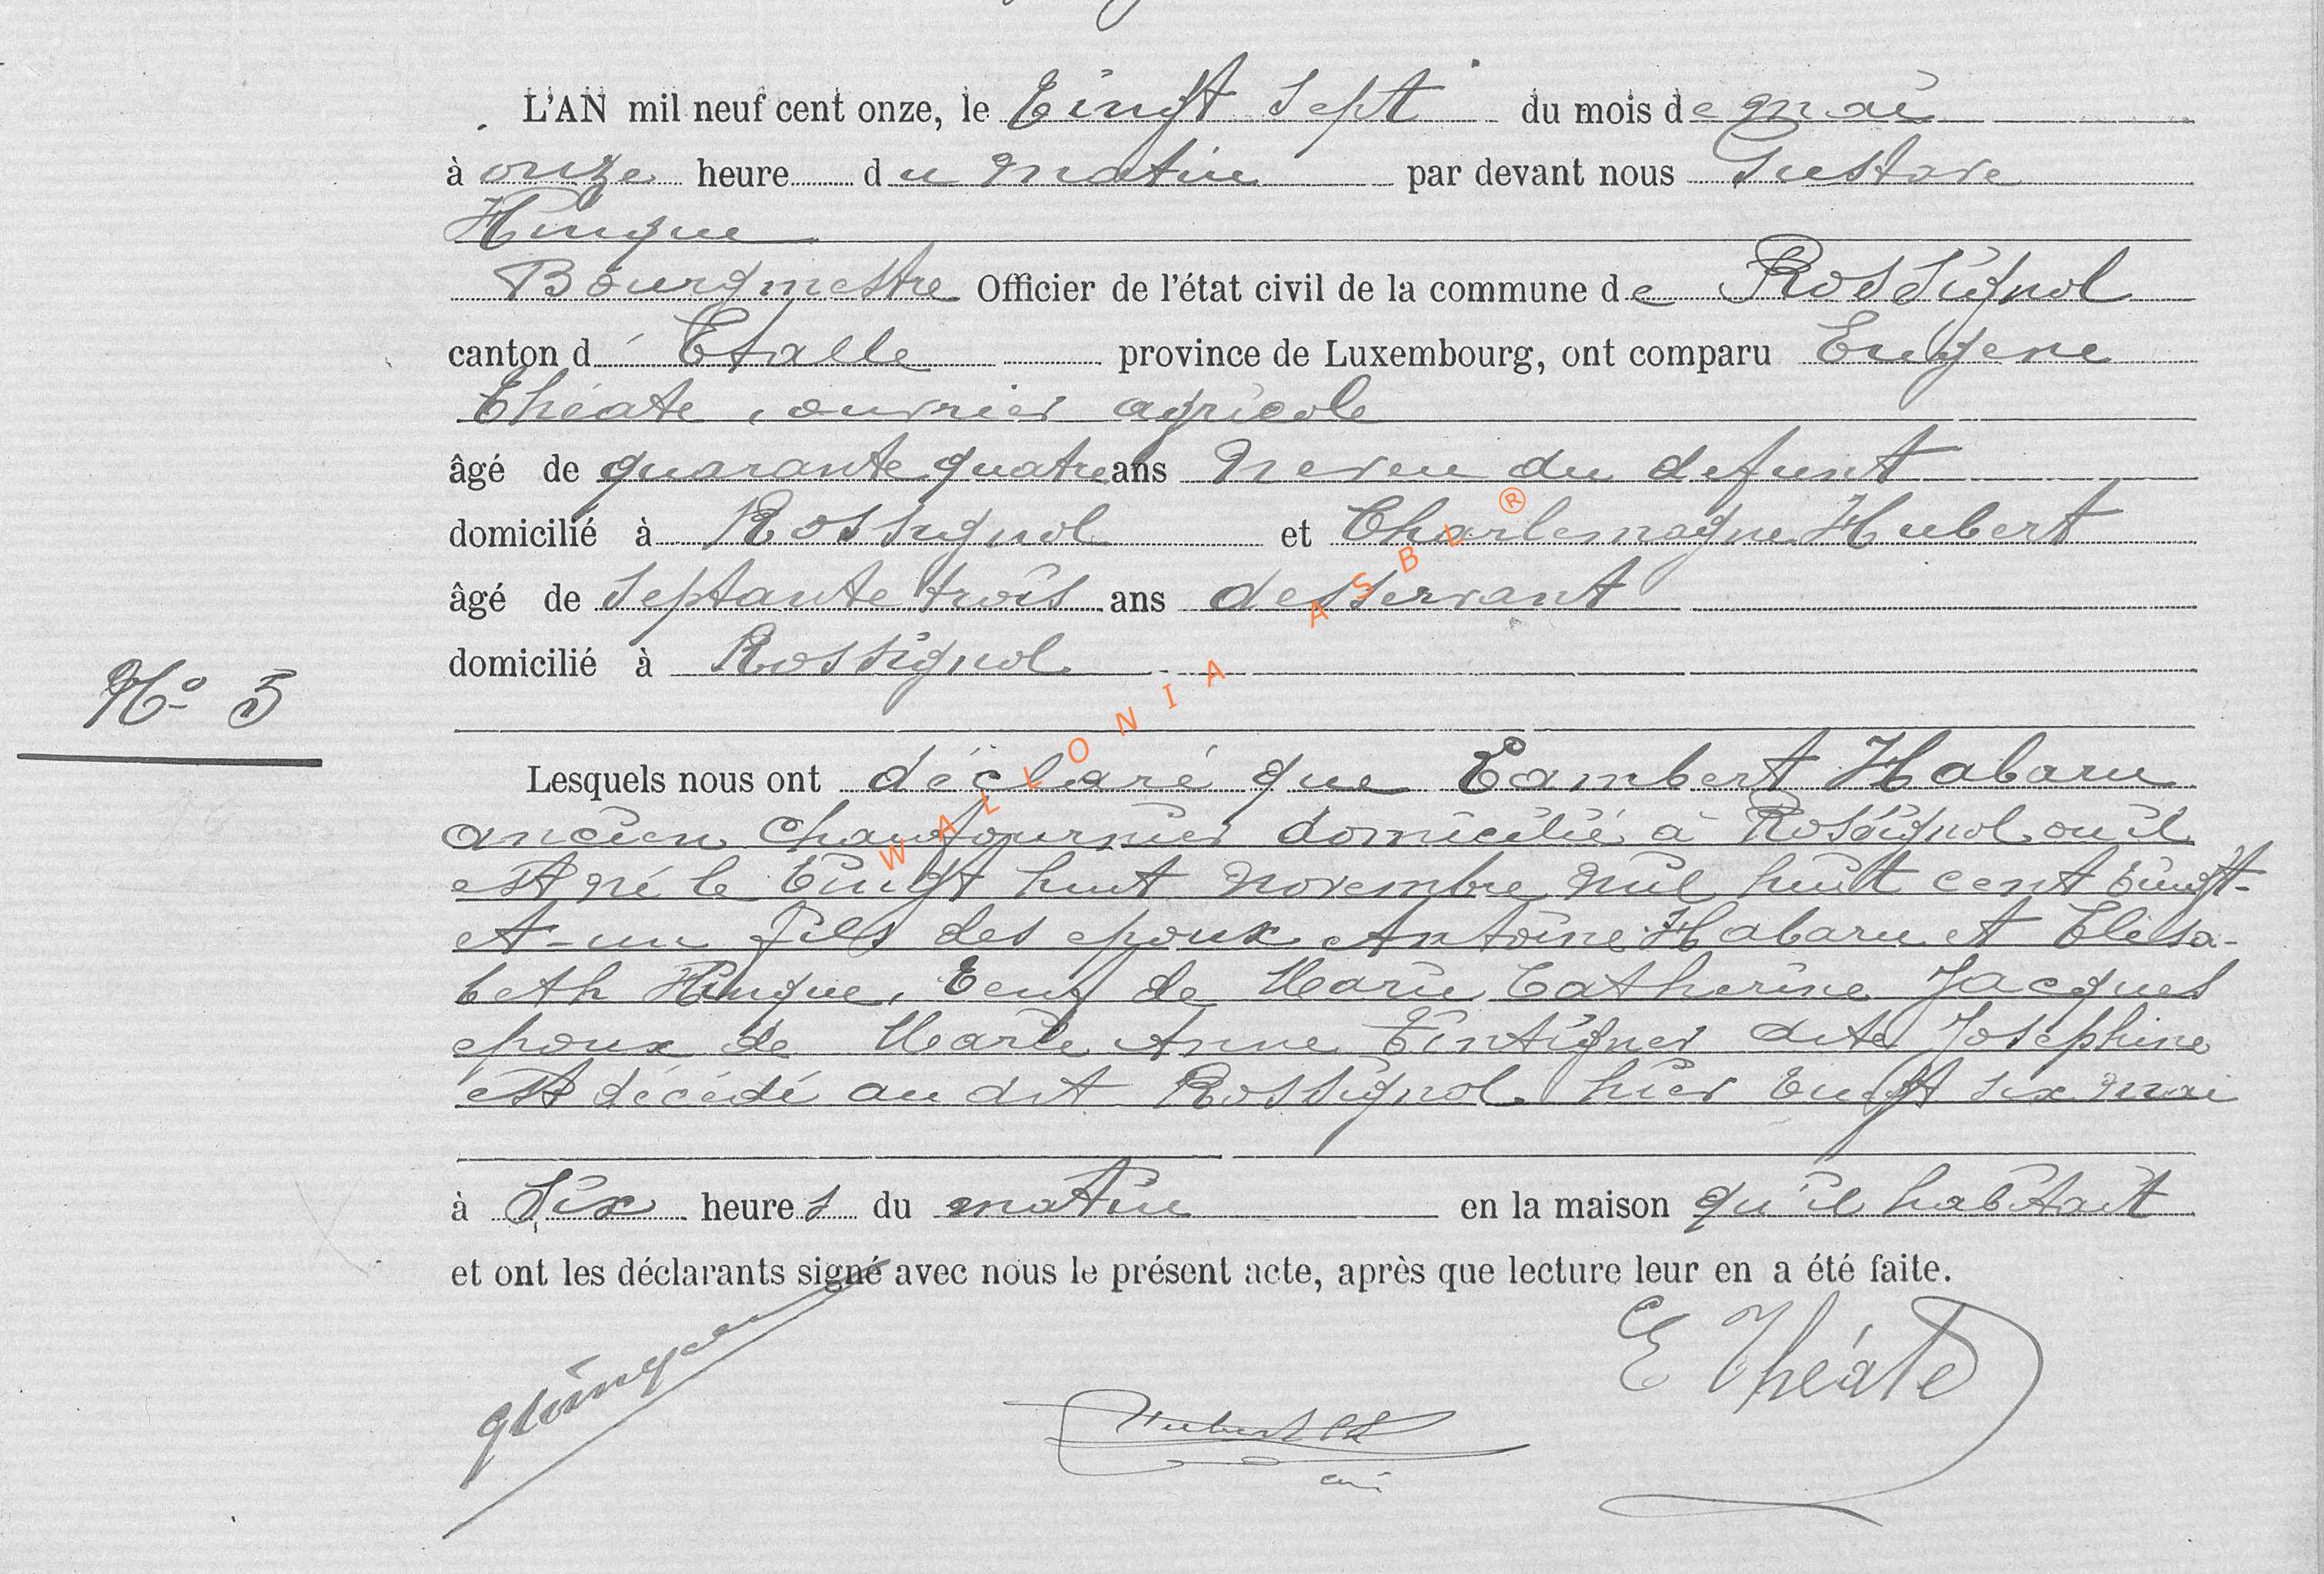 L'AN mil neuf cent onze, le Vingt sept du mois de mai
à onze heure du matin par devant nous Gustave
Hinque
Bourgmestre Officier de l'état civil de la commune de Rossignol
canton d' Etalle province de Luxembourg, ont comparu Eugene
Théate, ouvrier agricole
âgé de quarante quatre ans neveu du defunt
domicilié à Rossignol et Charlemagne Hubert
âgé de septante trois ans desservant
domicilié à Rossignol
No 5
Lesquels nous ont déclaré que Lambert Habaru
ancien chaufournier domicilié à Rossignol où il
est né le vingt huit novembre mil huit cent vingt-
et-un fils des epoux Antoine Habaru et Elisa-
beth Hinque, Veuf de Marie Catherine Jacques
epoux de Marie Anne Tintigner dite Josephine
est décédé au dit Rossignol hier vingt six mai
à six heures du matin en la maison qu'il habitait
et ont les déclarants signé avec nous le présent acte, après que lecture leur en a été faite.
E Théate
GHinque
Hubert Ch
curé
WALLONIA ASBL ®